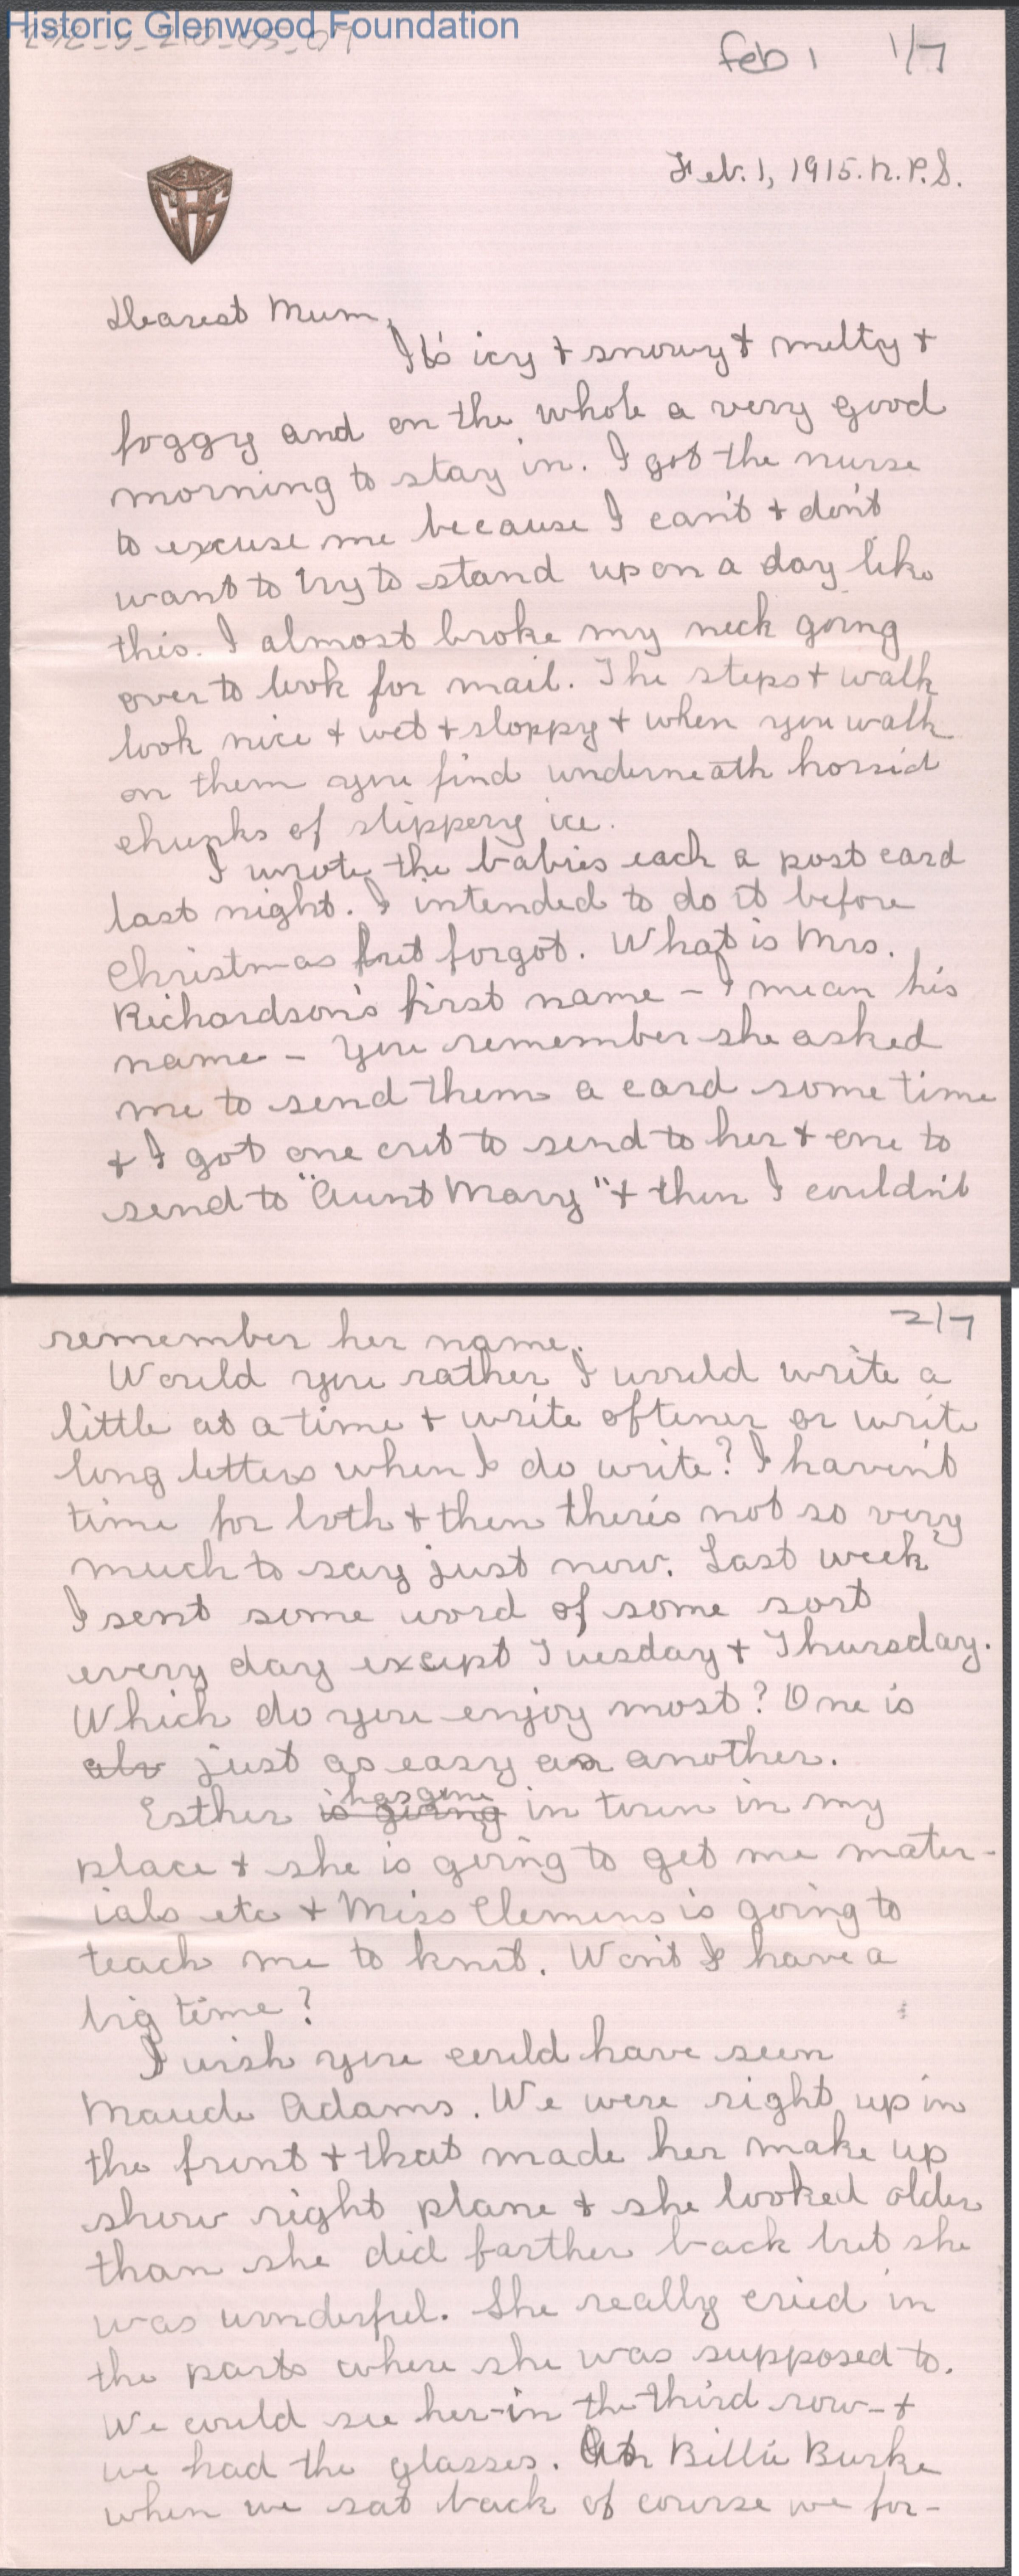 Historic Glenwood Foundation
Feb 1 1/7
Feb. 1, 1915. N.P.S.
Dearest Mum,
It's icy + snowy + melty +
foggy and on the whole a very good
morning to stay in. I got the nurse
to excuse me because I can't + don't
want to try to stand up on a day like
this. I almost broke my neck going
over to look for mail. The steps + walk
look nice + wet + sloppy + when you walk
on them you find underneath horrid
chunks of slippery ice.
I wrote the babies each a post card
last night. I intended to do it before
Christmas but forgot. What is Mrs.
Richardson's first name - I mean his
name - You remember she asked
me to send them a card some time
+ I got one out to send to her + one to
send to "Aunt Mary" + then I couldn't
2/7
remember her name.
Would you rather I would write a
little at a time + write oftener or write
long letters when I do write? I haven't
time for both + then there's not so very
much to say just now. Last week
I sent some word of some sort
every day except Tuesday + Thursday.
Which do you enjoy most? One is
alr just as easy as another.
Esther is going has gone in town in my
place + she is going to get me mater-
ials etc + Miss Clemens is going to
teach me to knit. Won't I have a
big time?
I wish you could have seen
Maude Adams. We were right up in
the front + that made her make up
show right plane + she looked older
than she did farther back but she
was wonderful. She really cried in
the parts where she was supposed to.
We could see her - in the third row - +
we had the glasses. At Billie Burke
when we sat back of course we for-